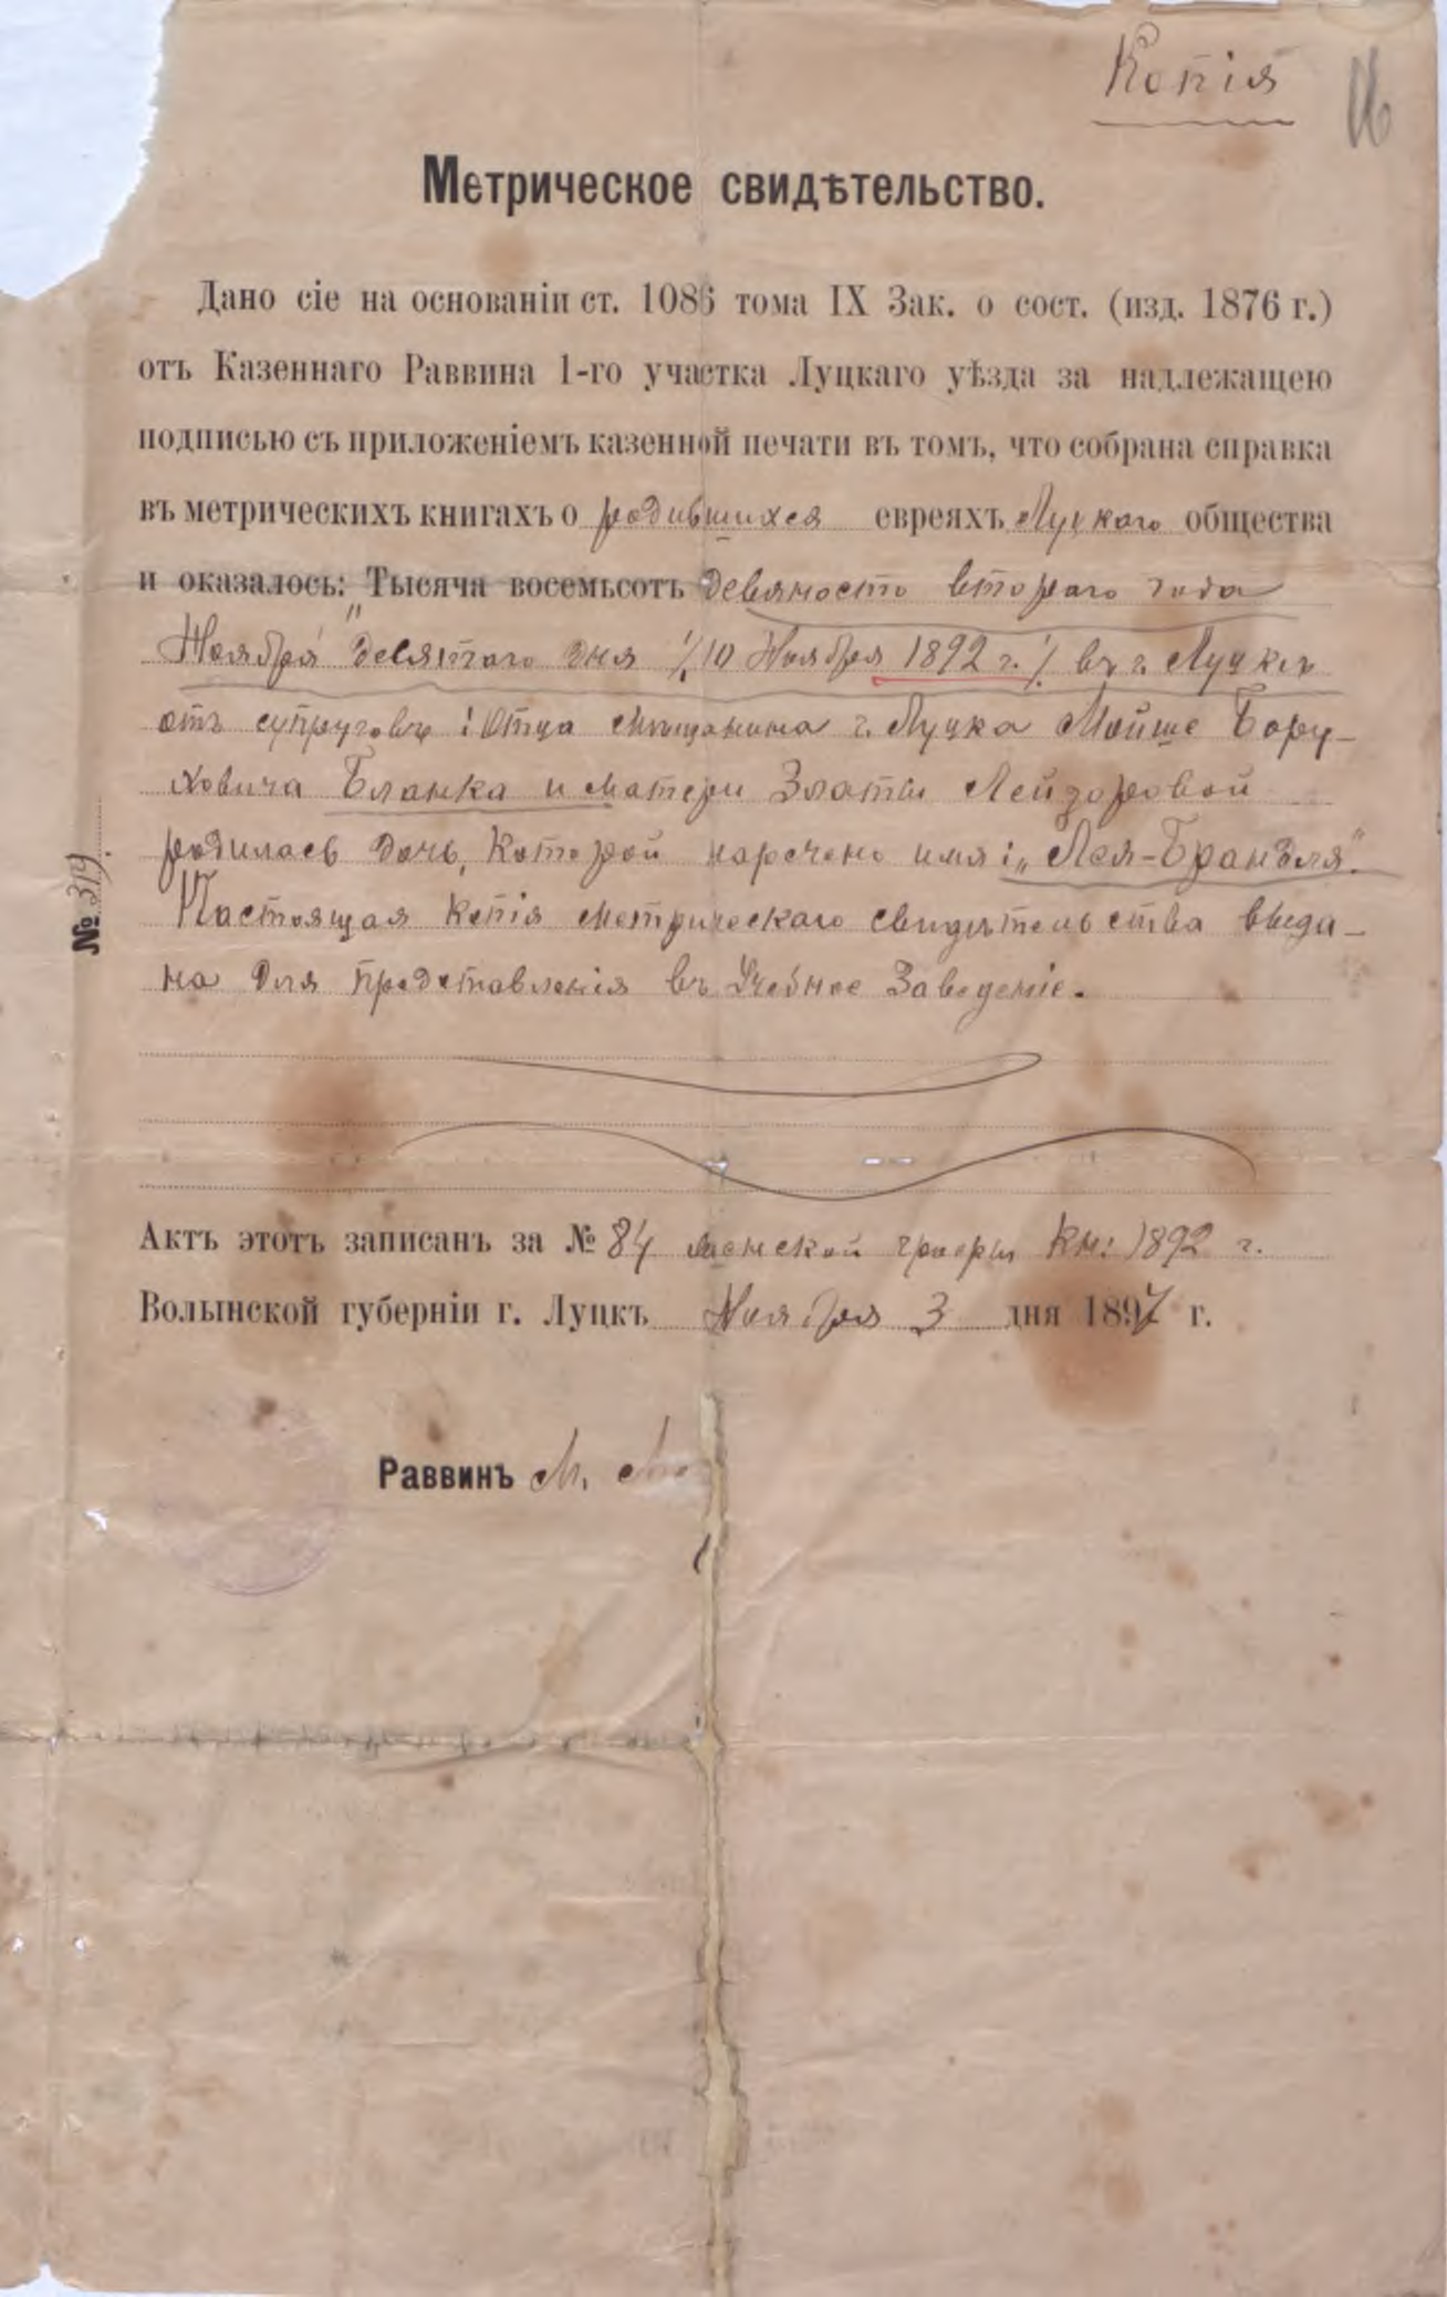 Копія
16
Метрическое свидѣтельство.
Дано сіе на основаніи ст. 1086 тома IX Зак. о сост. (изд. 1876 г.)
отъ Казеннаго Раввина 1-го участка Луцкаго уѣзда за надлежащею
подписью съ приложеніемъ казенной печати въ томъ, что собрана справка
въ метрическихъ книгахъ о родившихся евреяхъ Луцкаго общества
и оказалось: Тысяча восемьсотъ девяносто втораго года
Ноября "девятаго дня /10 Ноября 1892 г./ въ г. Луцкѣ
отъ супруговъ: Отца мѣщанина г. Луцка Мойше Бору-
ховича Бланка и матери Златы Лейзоровой
родилась дочь, которой наречено имя: „Лея-Брандля".
Настоящая копія метрическаго свидѣтельства выда-
на для представленія въ Учебное Заведеніе.
№ 319.
Актъ этотъ записанъ за № 84 женской графы кн: 1892 г.
Волынской губерніи г. Луцкъ Ноября 3 дня 1897 г.
Раввинъ М.